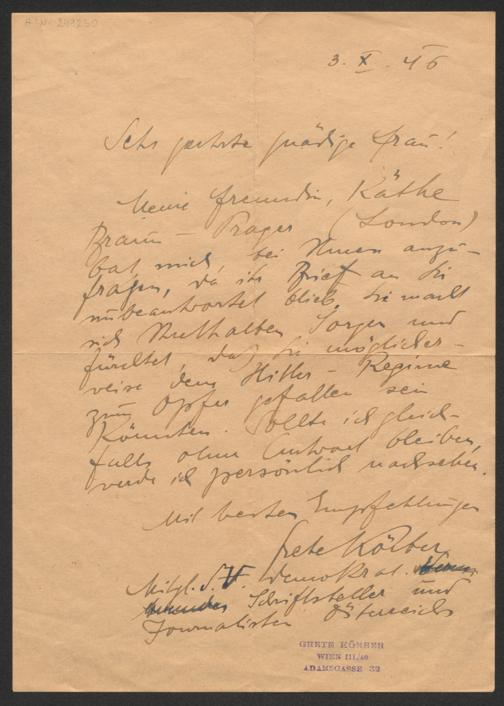 A: N: 249250
3. X. 46
Sehr geehrte gnädige Frau!
Meine Freundin, Käthe
Braun-Prager (London)
bat mich, bei Ihnen anzu-
fragen, da ihr Brief an Sie
unbeantwortet blieb. Sie macht
sich Ihrethalben Sorgen und
fürchtet, daß Sie möglicher-
weise dem Hitler-Regime
zum Opfer gefallen sein
könnten. Sollte ich gleich-
falls ohne Antwort bleiben,
werde ich persönlich nachsehen.
Mit besten Empfehlungen
Grete Körber
Mitgl. d. V. demokrat.
Schriftsteller und
Journalisten Österreichs
GRETE KÖRBER
WIEN III/40
ADAMSGASSE 32